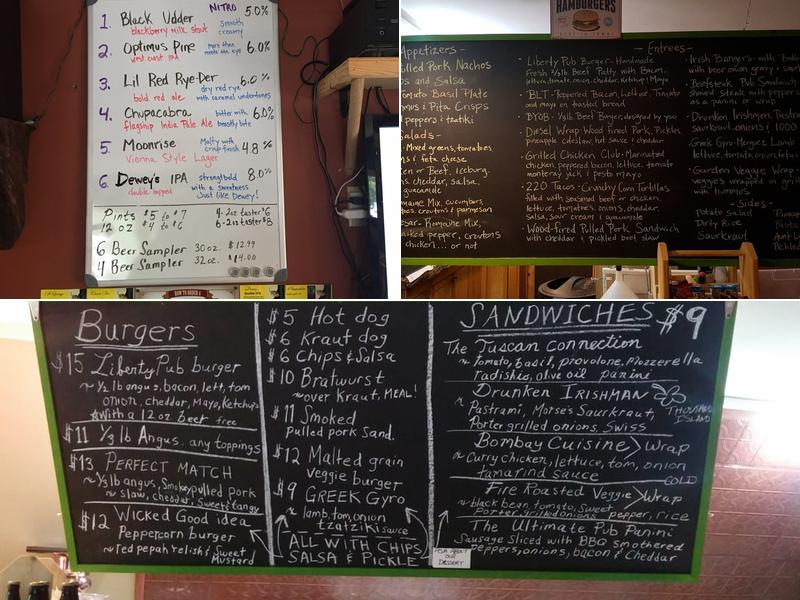 1. Black Udder NITRO 5.0%
blackberry milk stout Smooth creamy
2. Optimus Pine more than meets the eye 6.0%
west coast IPA
3. Lil Red Rye-Der 6.0%
bold red ale dry red rye with caramel undertones
4. Chupacabra bitter with 6.0%
flagship India Pale Ale toasty bite
5. Moonrise Malty with crisp finish 4.8%
Vienna Style Lager
6. Dewey's IPA strong & bold 8.0%
double hopped with a sweetness Just like Dewey!
Pints $5 to $7 4-2oz taster $6
12 oz $4 to $6 6-2oz taster $8
6 Beer Sampler 30oz. $12.99
4 Beer Sampler 32oz. $14.00
HAMBURGERS
Appetizers -
Pulled Pork Nachos
and Salsa
Tomato Basil Plate
& Pita Crisps
peppers & tzatziki
Salads -
Mixed greens, tomatoes,
& feta cheese
or Beef, Iceburg,
cheddar, salsa,
guacamole
Romaine Mix, cucumbers,
croutons & parmesan
Romaine Mix,
pepper, croutons
chicken... or not
- Entrees -
· Liberty Pub Burger - Handmade
Fresh 1/2lb. Beef Patty with Bacon,
lettuce, tomato, onion, cheddar, ketchup & Mayo
· BLT - Peppered Bacon, Lettuce, Tomato
and mayo on toasted bread
· BYOB - 1/3lb Beef Burger, designed by you
· Diesel Wrap - Wood fired Pork, Pickles,
pineapple coleslaw, hot sauce & cheddar
· Grilled Chicken Club - Marinated
chicken, peppered bacon, lettuce, tomato
monterey jack & pesto mayo
· 220 Tacos - Crunchy Corn Tortillas
filled with seasoned beef or chicken,
lettuce, tomatoes, onions, cheddar,
salsa, sour cream & guacamole
· Wood-fired Pulled Pork Sandwich
with cheddar & pickled beet slaw
· Irish Bangers - with
with beer onion gravy &
· Beefsteak Pub Sandwich
shaved steak with
as a panini or wrap
· Drunken Irishman, Pastrami
saurkraut, onions & 1000
· Greek Gyro - Merguez Lamb
lettuce, tomato, onion, feta
· Garden Veggie Wrap -
veggies wrapped in
with hummus
- Sides -
Potato Salad
Dirty Rice
Saurkraut
Burgers
$15 Liberty Pub burger
~ 1/2 lb angus, bacon, lett, tom
onion, cheddar, Mayo, Ketchup
With a 12 oz beer free
$11 1/3 lb Angus. any toppings
$13 PERFECT MATCH
~ 1/3 lb angus, Smokey pulled pork
~ slaw, cheddar, sweet tangy
$12 Wicked Good idea
Peppercorn burger
~ Red pepah relish & Sweet Mustard
$5 Hot dog
$6 Kraut dog
$6 Chips & Salsa
$10 Bratwurst
~ over Kraut, MEAL!
$11 Smoked
pulled pork Sand.
$12 Malted grain
veggie burger
$9 GREEK Gyro
~ lamb, tom, onion
tzatziki sauce
ALL WITH CHIPS
SALSA & PICKLE
SANDWICHES $9
The Tuscan connection
~ tomato, basil, provolone, Mozzerella
radishio, olive oil panini
Drunken IRISHMAN
~ Pastrami, Morse's Saurkraut,
Porter grilled onions, Swiss
THOUSAND ISLAND
Bombay Cuisine > Wrap
~ Curry chicken, lettuce, tom, onion
tamarind sauce COLD
Fire Roasted Veggie > Wrap
~ black bean, tomato, sweet
Porter grilled onions pepper, rice
The Ultimate Pub Panini
Sausage Sliced with BBQ smothered
peppers, onions, bacon & Cheddar
ASK ABOUT
OUR
DESSERT